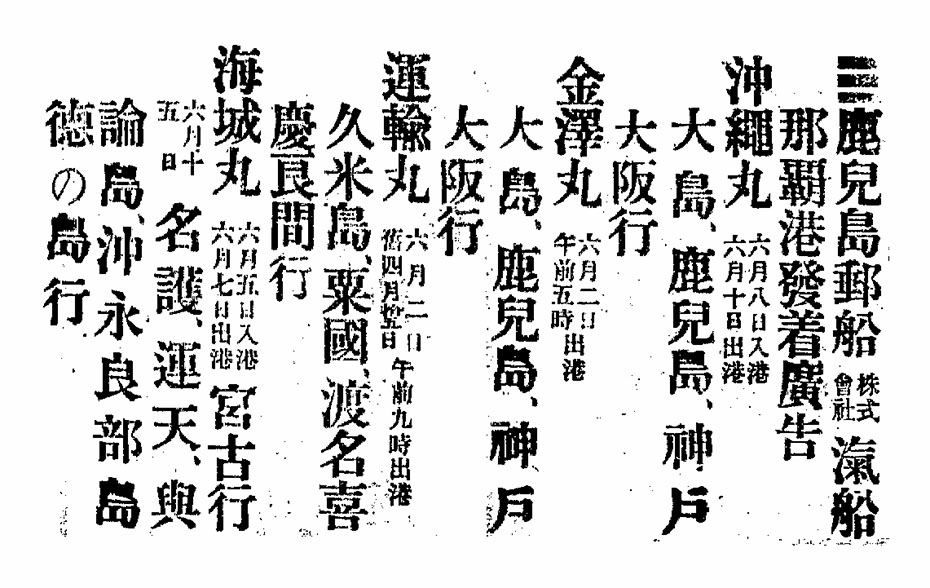 鹿兒島郵船株式會社滊船
那覇港發着廣告
沖繩丸 六月八日入港 六月十日出港
大島、鹿兒島、神戶
大阪行
金澤丸 六月二日午前五時出港
大島、鹿兒島、神戶
大阪行
運輸丸 六月二日 舊四月日 午前九時出港
久米島、粟國、渡名喜
慶良間行
海城丸 六月五日入港 六月七日出港 宮古行
六月十五日 名護、運天、與
論島、沖永良部島
德の島行